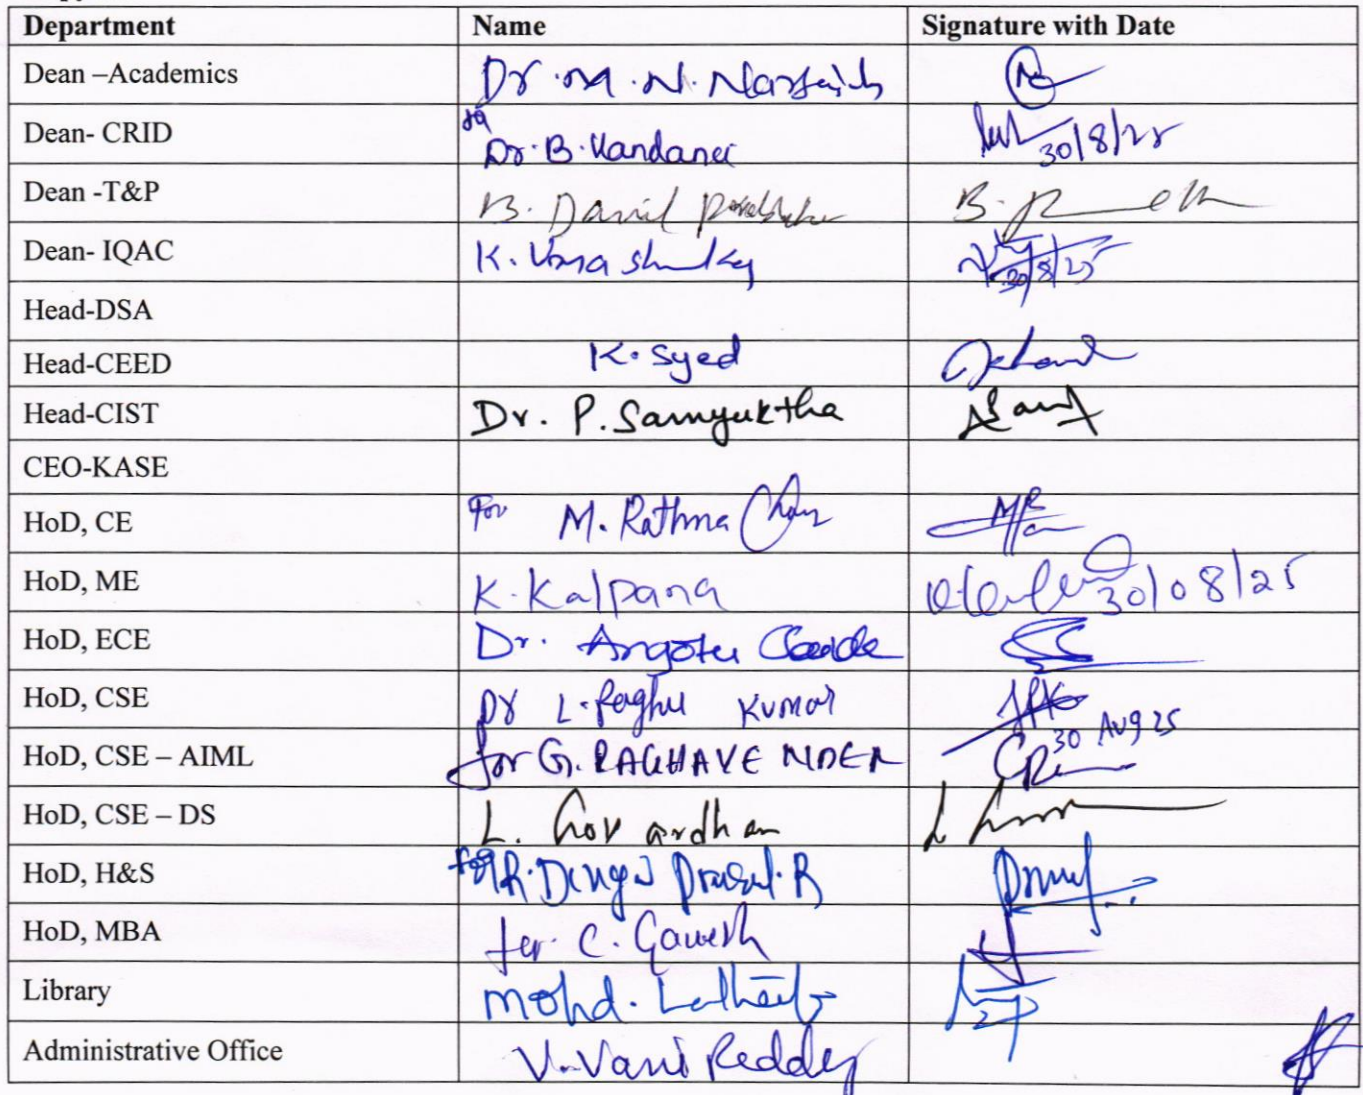 Department Name Signature with Date
Dean –Academics Dr. M. N. Narsaiah
Dean- CRID Dr. B. Vandana 30/8/25
Dean -T&P B. David
Dean- IQAC K. Uma 30/8/25
Head-DSA
Head-CEED K. Syed
Head-CIST Dr. P. Samyuktha
CEO-KASE
HoD, CE For M. Rathna
HoD, ME K. Kalpana 30/08/25
HoD, ECE Dr. Angotu
HoD, CSE Dr L. Raghu Kumar 30 Aug 25
HoD, CSE – AIML for G. RAGHAVENDER
HoD, CSE – DS L. Govardhan
HoD, H&S for
HoD, MBA for C. Ganesh
Library Mohd.
Administrative Office V. Vani Reddy